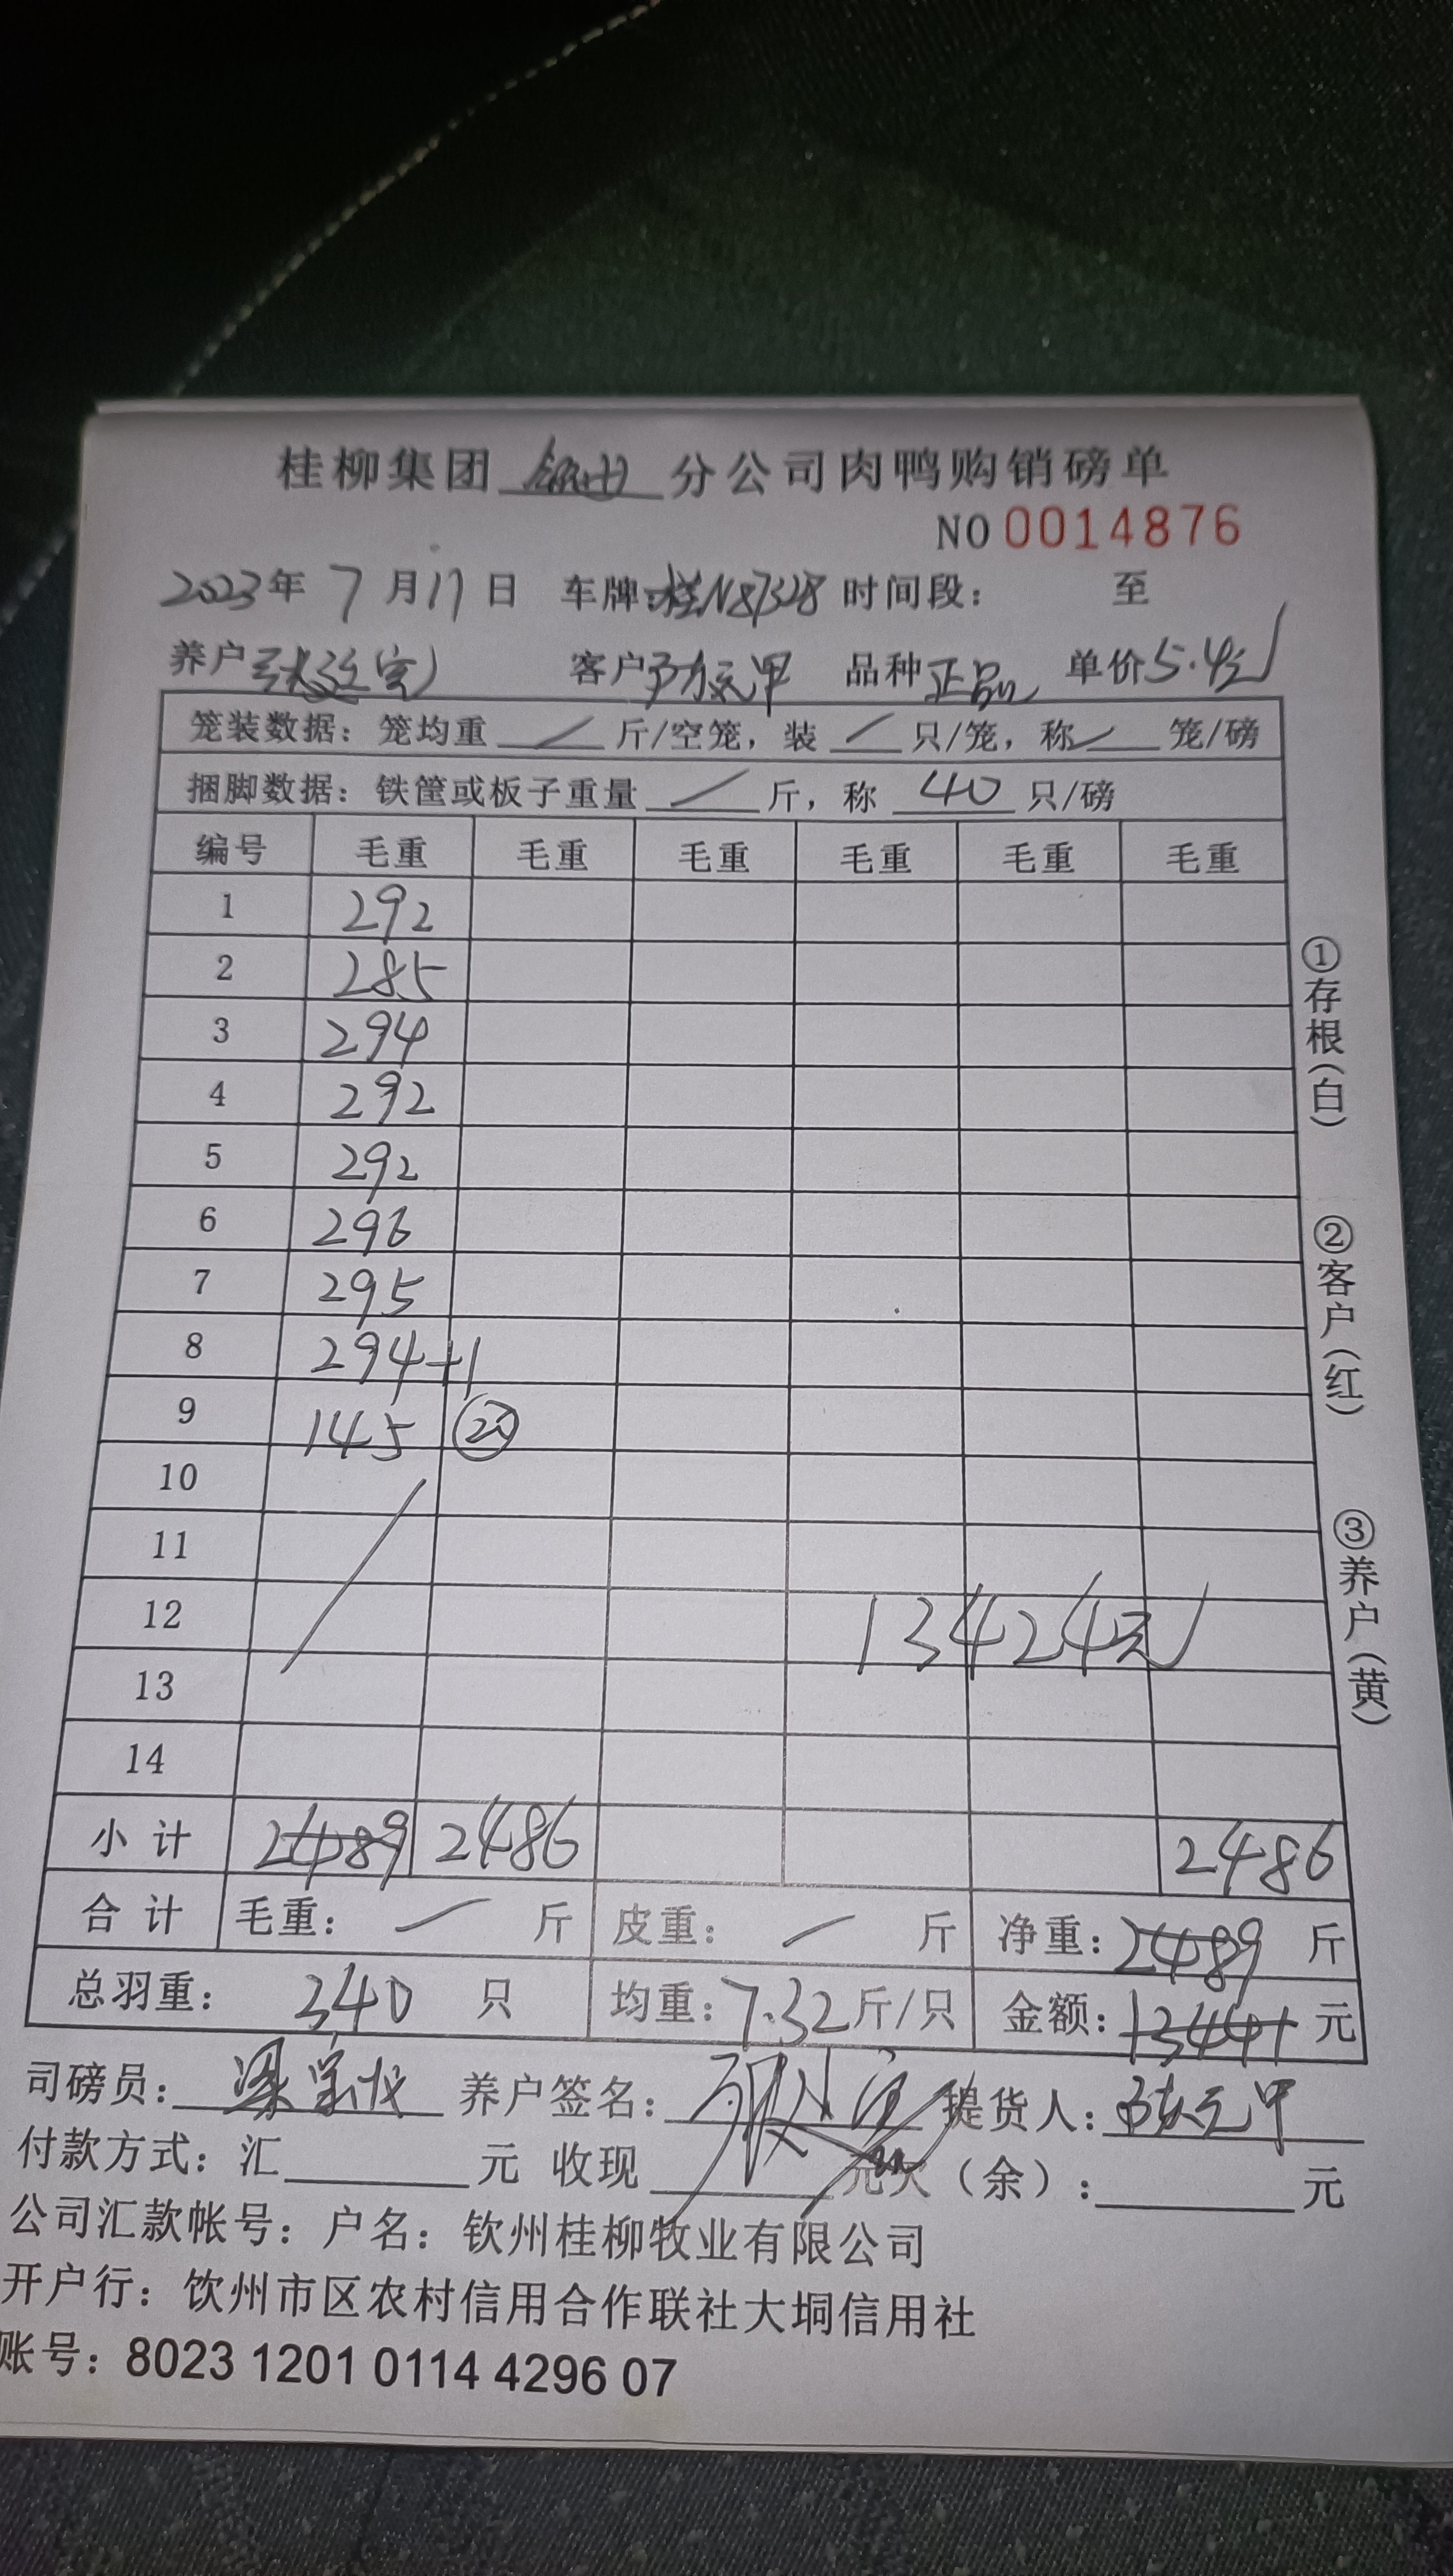 桂柳集团 钦州 分公司肉鸭购销磅单
NO 0014876
2023年 7 月 17 日 车牌:桂N87328 时间段: 至
养户 客户 元甲 品种 正品 单价 5.4元
笼装数据: 笼均重 / 斤/空笼, 装 / 只/笼, 称 / 笼/磅
捆脚数据: 铁筐或板子重量 / 斤, 称 40 只/磅
编号 毛重 毛重 毛重 毛重 毛重 毛重
1 292
2 285
3 294
4 292
5 292
6 296
7 295
8 294+1
9 145
10
11
12 13424元
13
14
小计 2489 2486 2486
合计 毛重: / 斤 皮重: / 斤 净重: 2489 斤
总羽重: 340 只 均重: 7.32 斤/只 金额: 13441 元
司磅员: 梁 养户签名: 提货人: 元甲
付款方式: 汇 元 收现 元欠(余): 元
公司汇款帐号: 户名: 钦州桂柳牧业有限公司
开户行: 饮州市区农村信用合作联社大垌信用社
账号: 8023 1201 0114 4296 07
①存根(白)
②客户(红)
③养户(黄)